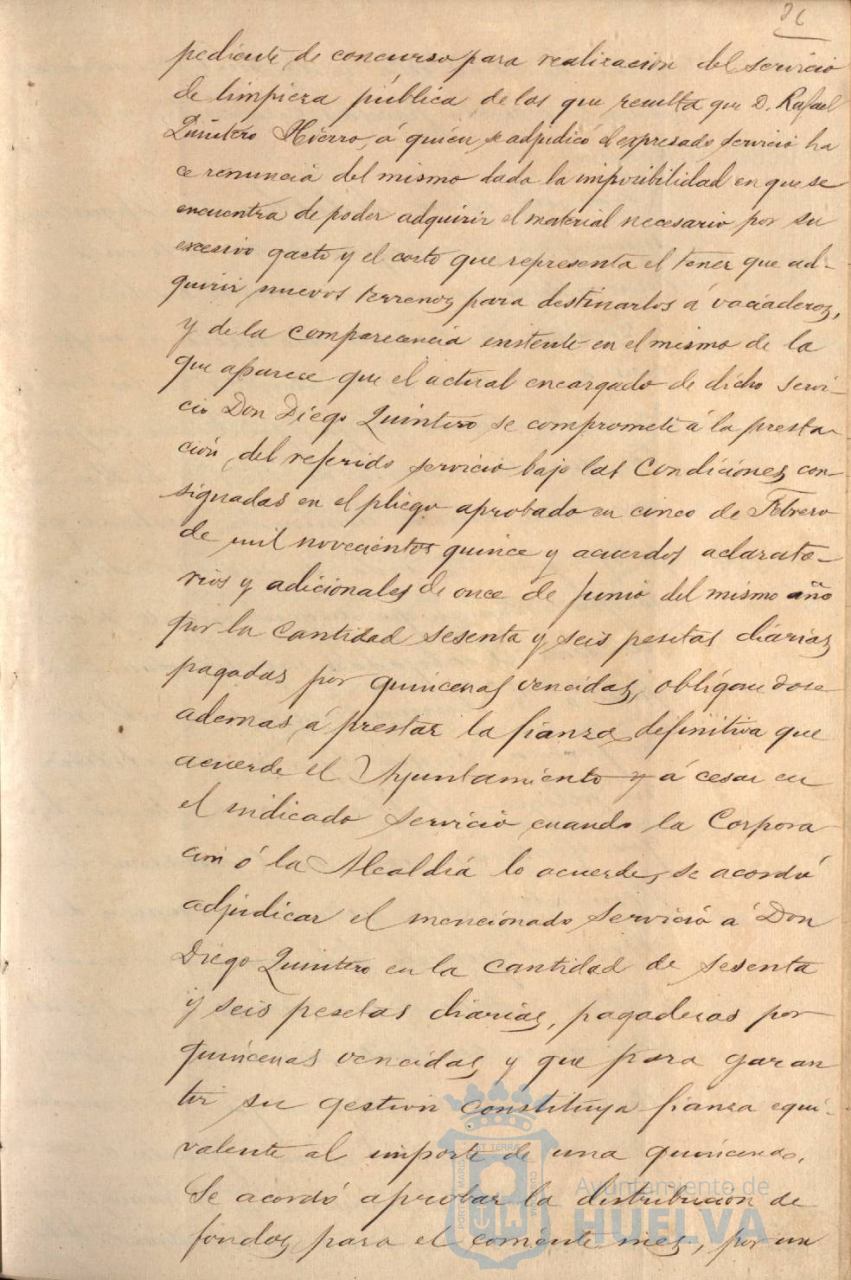 pediente de concurso para realización del servicio
de limpieza pública de los que resulta que D. Rafael
Quintero Hierro, á quien se adjudicó el expresado servicio ha
ce renuncia del mismo dada la imposibilidad en que se
encuentra de poder adquirir el material necesario por su
excesivo gasto y el costo que representa el tener que ad-
quirir nuevos terrenos para destinarlos á vaciaderos,
y de la comparecencia existente en el mismo de la
que aparece que el actual encargado de dicho servi-
cio Don Diego Quintero se compromete á la presta-
ción del referido servicio bajo las condiciones con-
signadas en el pliego aprobado en cinco de Febrero
de mil novecientos quince y acuerdos aclarato-
rios y adicionales de once de Junio del mismo año
por la cantidad sesenta y seis pesetas diarias
pagadas por quincenas vencidas, obligandose
ademas á prestar la fianza definitiva que
acuerde el Ayuntamiento y á cesar en
el indicado servicio cuando la Corpora
cion ó la Alcaldía lo acuerde, se acordó
adjudicar el mencionado servicio á Don
Diego Quintero en la cantidad de sesenta
y seis pesetas diarias, pagaderas por
quincenas vencidas y que para garan
tir su gestion constituya fianza equi-
valente al importe de una quincena.
Se acordó aprobar la distribución de
fondos para el corriente mes, por un
Ayuntamiento de
HUELVA